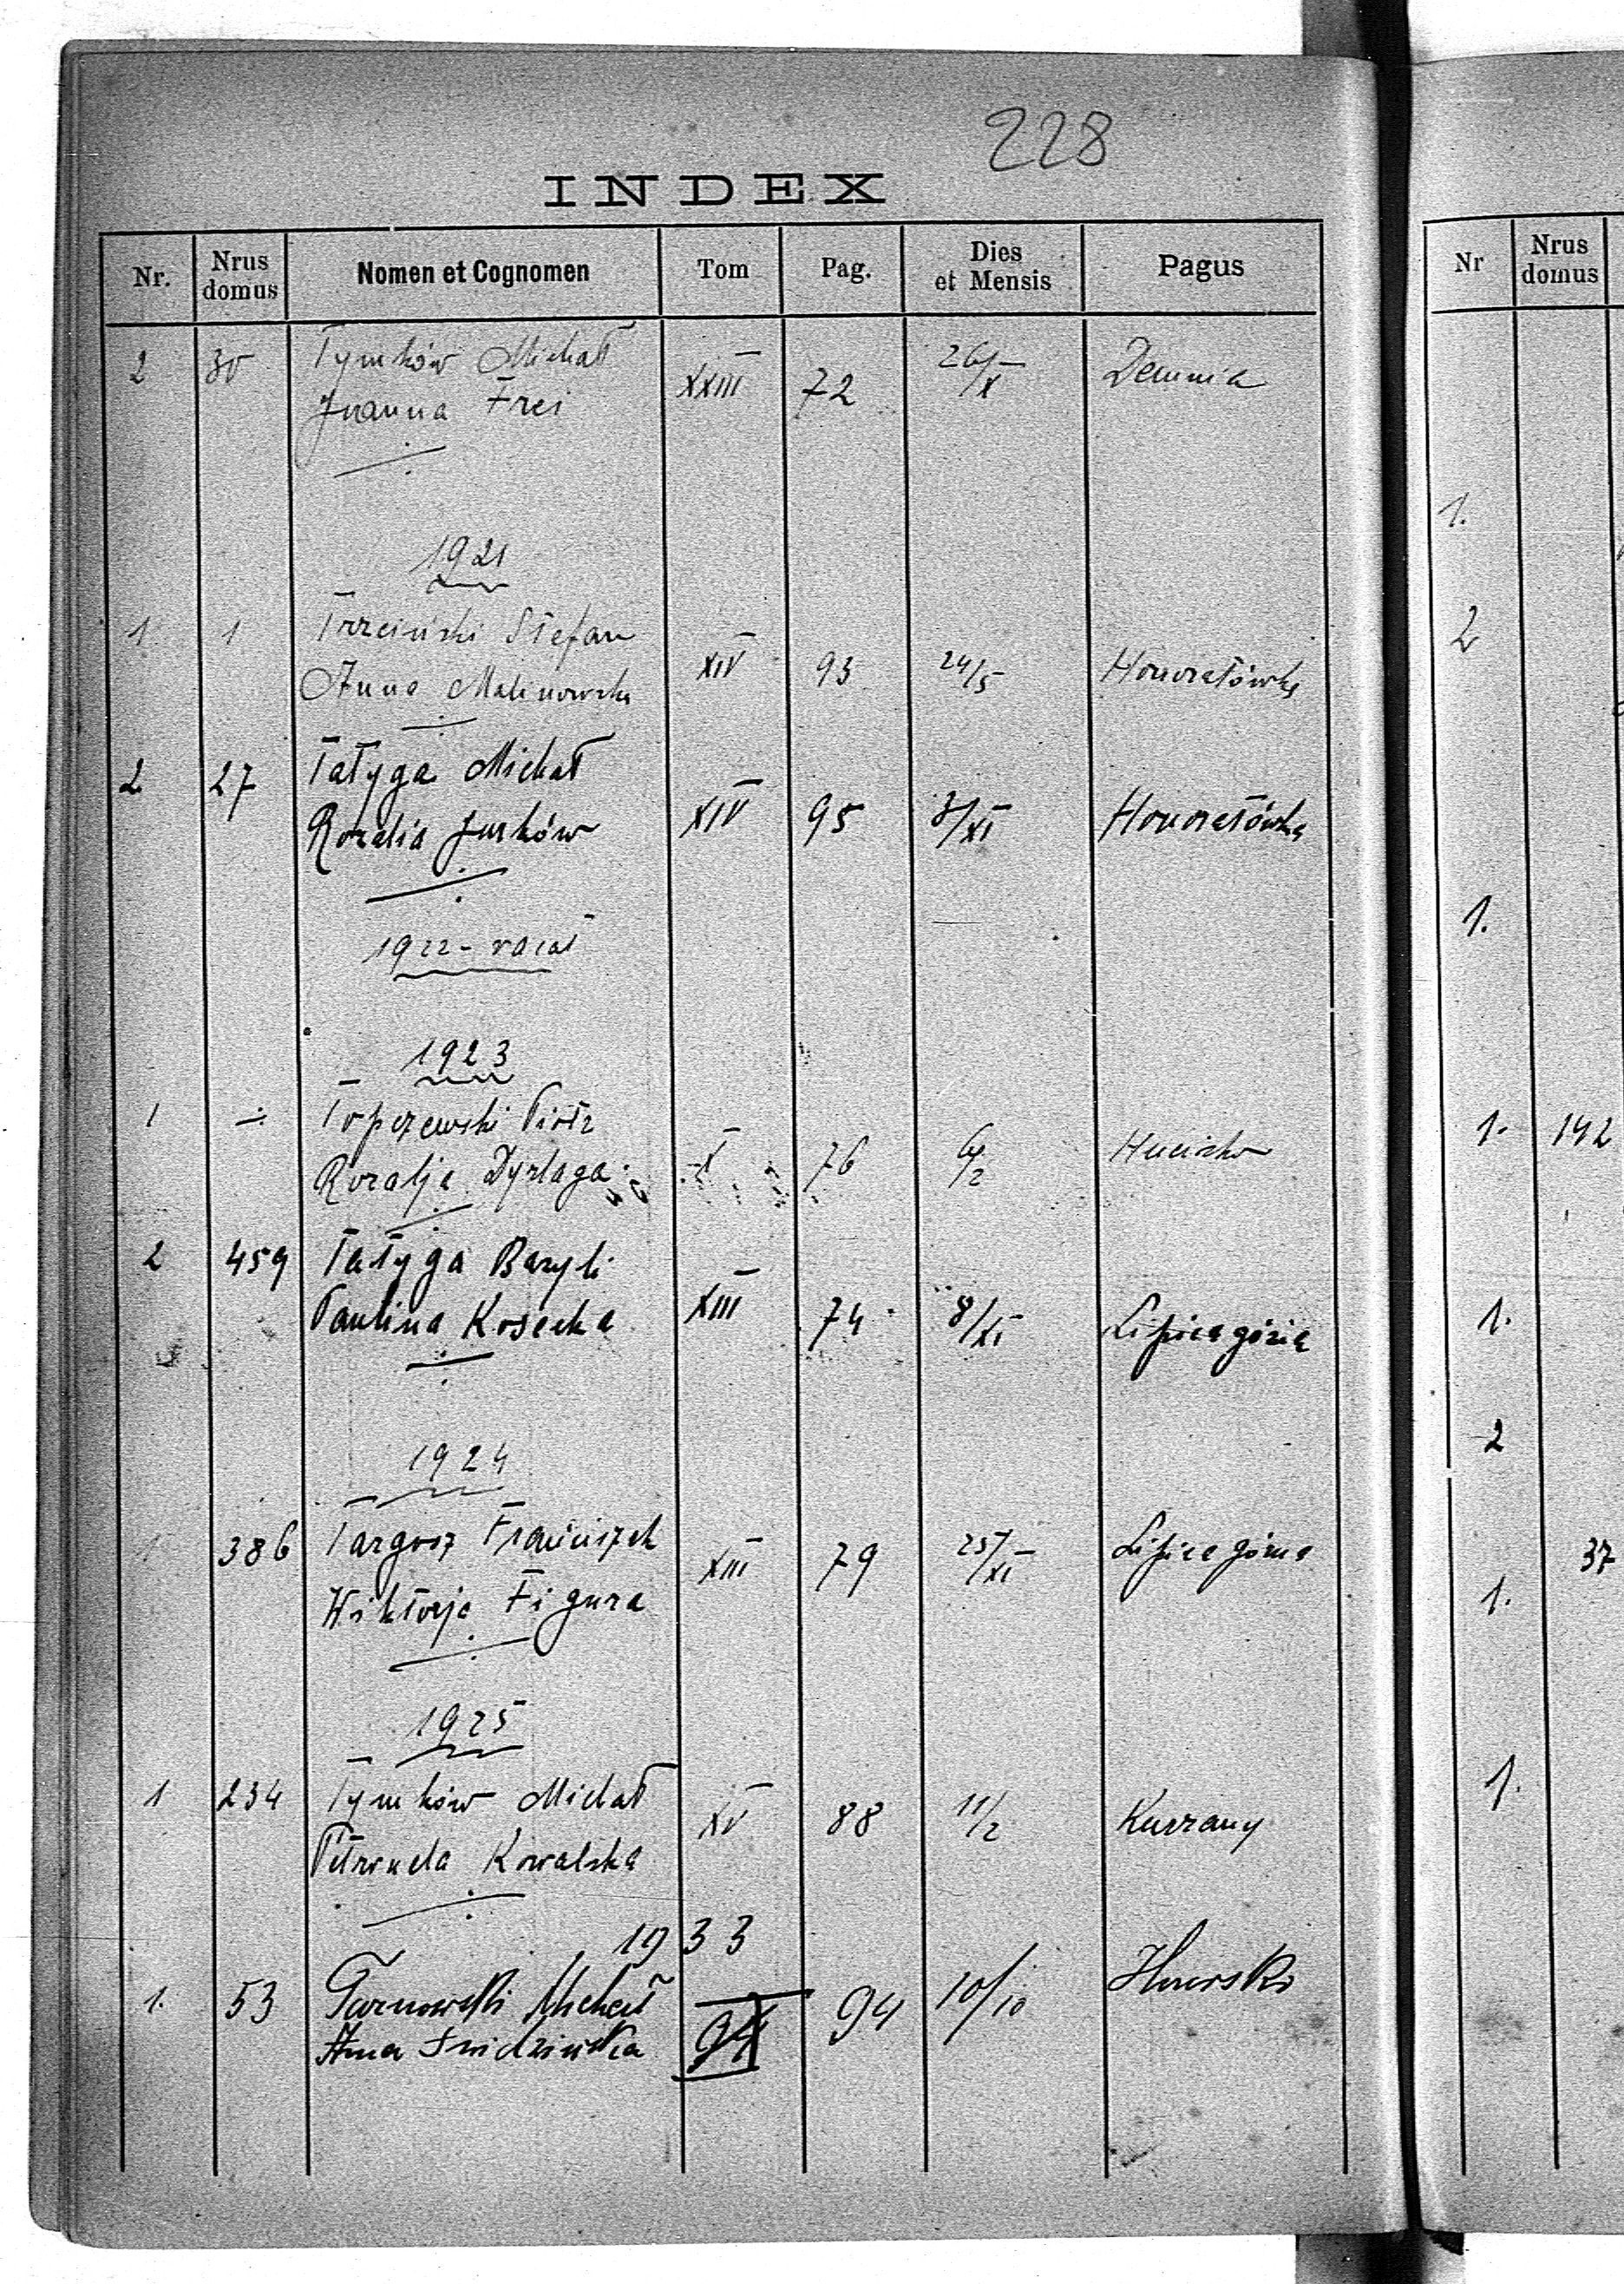 228
INDEX
Nr. Nrus domus Nomen et Cognomen Tom Pag. Dies et Mensis Pagus
2 30 Tymków Michał XXIII 72 26/X Demnia
Joanna Frei
1921
1 1 Trzciński Stefan XIV 93 24/5 Honoratówka
Anna Malinowska
2 27 Tatyga Michał XIV 95 3/XI Honoratówka
Rozalia Jurków
1922 - vacat
1923
1 -:- Topczewski Piotr X 76 6/2 Hucisko
Rozalja Dyrlaga
2 459 Tatyga Bazyli XIII 74 8/XI Lipica górna
Paulina Kosecka
1924
1 386 Targosz Franciszek XIII 79 25/XI Lipica górna
Wiktorja Figura
1925
1 234 Tymków Michał XV 88 11/2 Kurzany
Petronela Kowalska
1933
1. 53 Tarnowski Michał 94 10/10
Anna
Nr Nrus domus
1.
2
1.
1. 142
1.
2
37
1.
1.